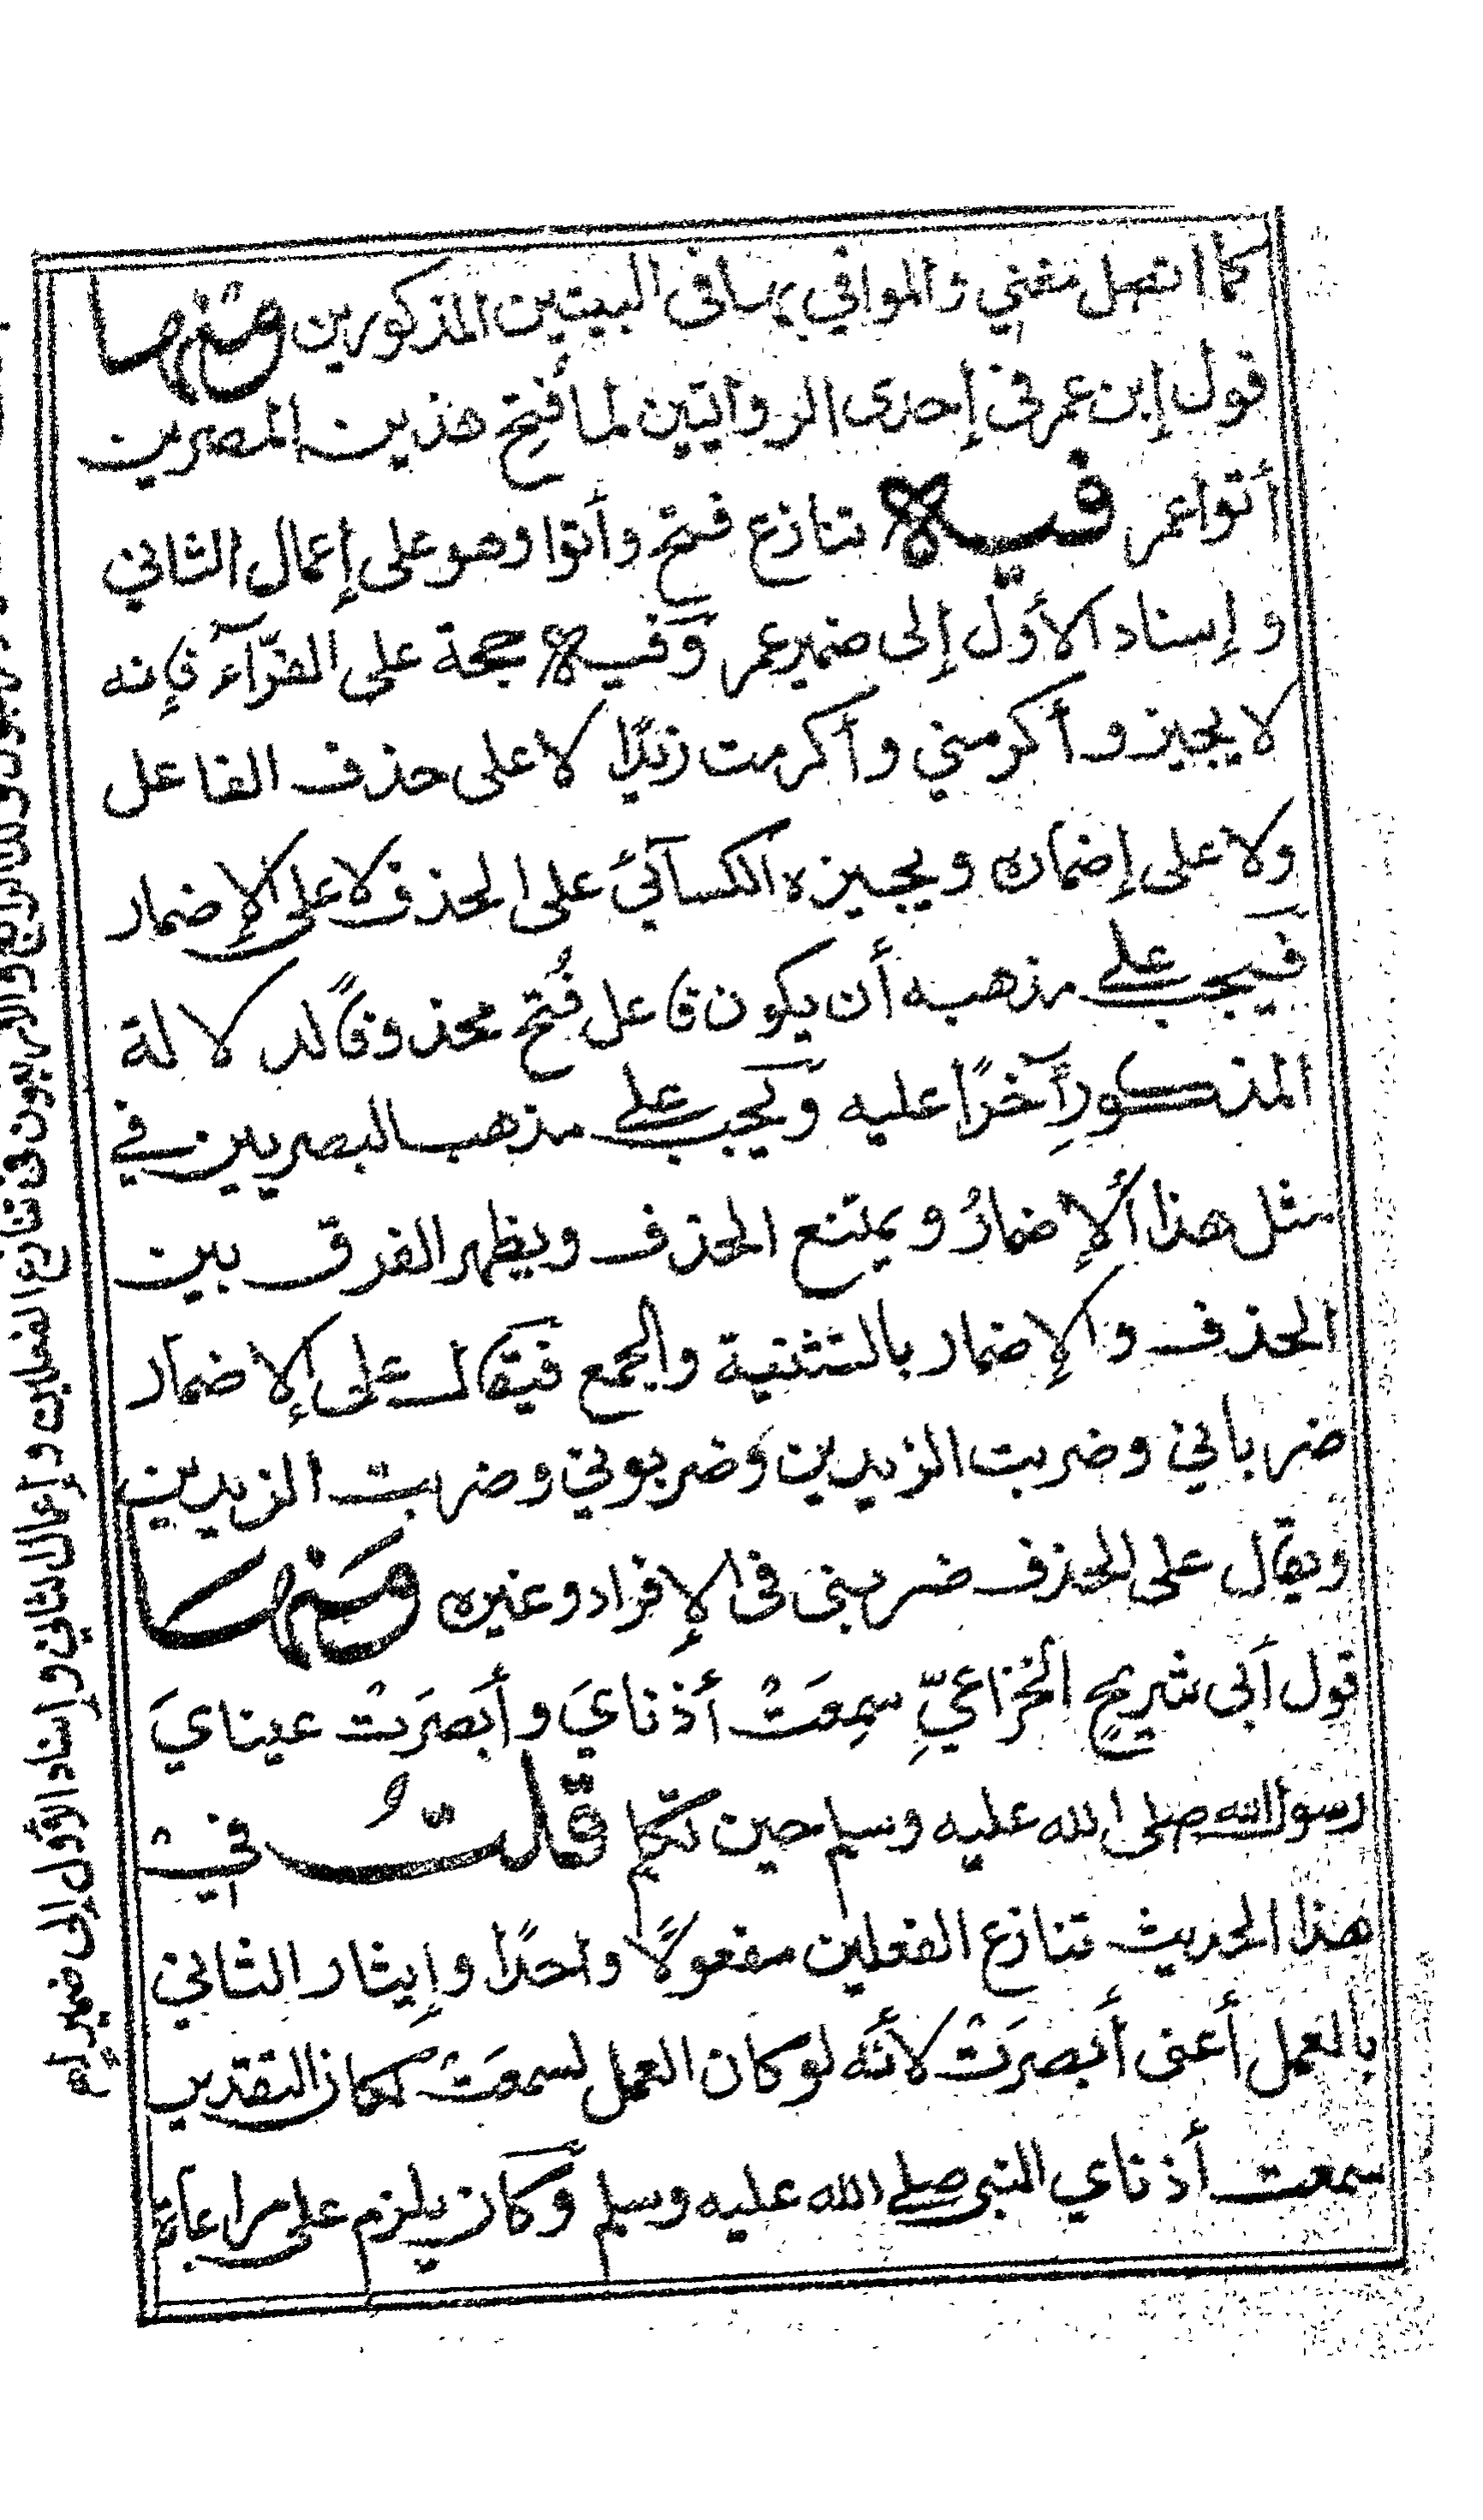 كما اتصل مغني والموافي بهما فى البيتين المذكورين ومنها
قول إبن عمر في إحدى الروايتين لما فُتِح هذين المصرين
أتوا عمر فيه تنازع فتح وأتوا وهو على إعمال الثاني
وإسناد الأوّل إلى ضمير عمر وفيه حجة على الفرّآء فإنه
لا يجيز وأكرمني وأكرمت زيدًا لا على حذف الفاعل
ولا على إضماره ويجيزه الكسآئيّ على الحذف لا على الإضمار
فيجب على مذهبه أن يكون فاعل فُتح محذوفًا لدلالة
المذكورِ آخرًا عليه ويجب على مذهب البصريين في
مثل هذا ألإضمارُ ويمتنع الحذف ويظهر الفرق بين
الحذف والإضمار بالتثنية والجمع فيقال على الإضمار
ضرباني وضربت الزيدين وضربوني وضربت الزيدين
ويقال على الحذف ضربنى فى الإفراد وغيره ومنها
قول أبى شريحٍ الخزاعيِّ سمِعَتْ أذنايَ وأبصَرَتْ عينايَ
رسول الله صلى الله عليه وسلم حين تكلم قلتُ في
هذا الحديث تنازع الفعلين مفعولًا واحدًا وإيثار الثاني
بالعمل أعنى أبصرَتْ لأنّه لو كان العمل لسمعَتْ لكان التقدير
سمعت أذناي النبى صلى الله عليه وسلم وكان يلزم على مراعاة
تنازع الفعلين وإعمال الثاني وإسناد الأول إلى ضمير